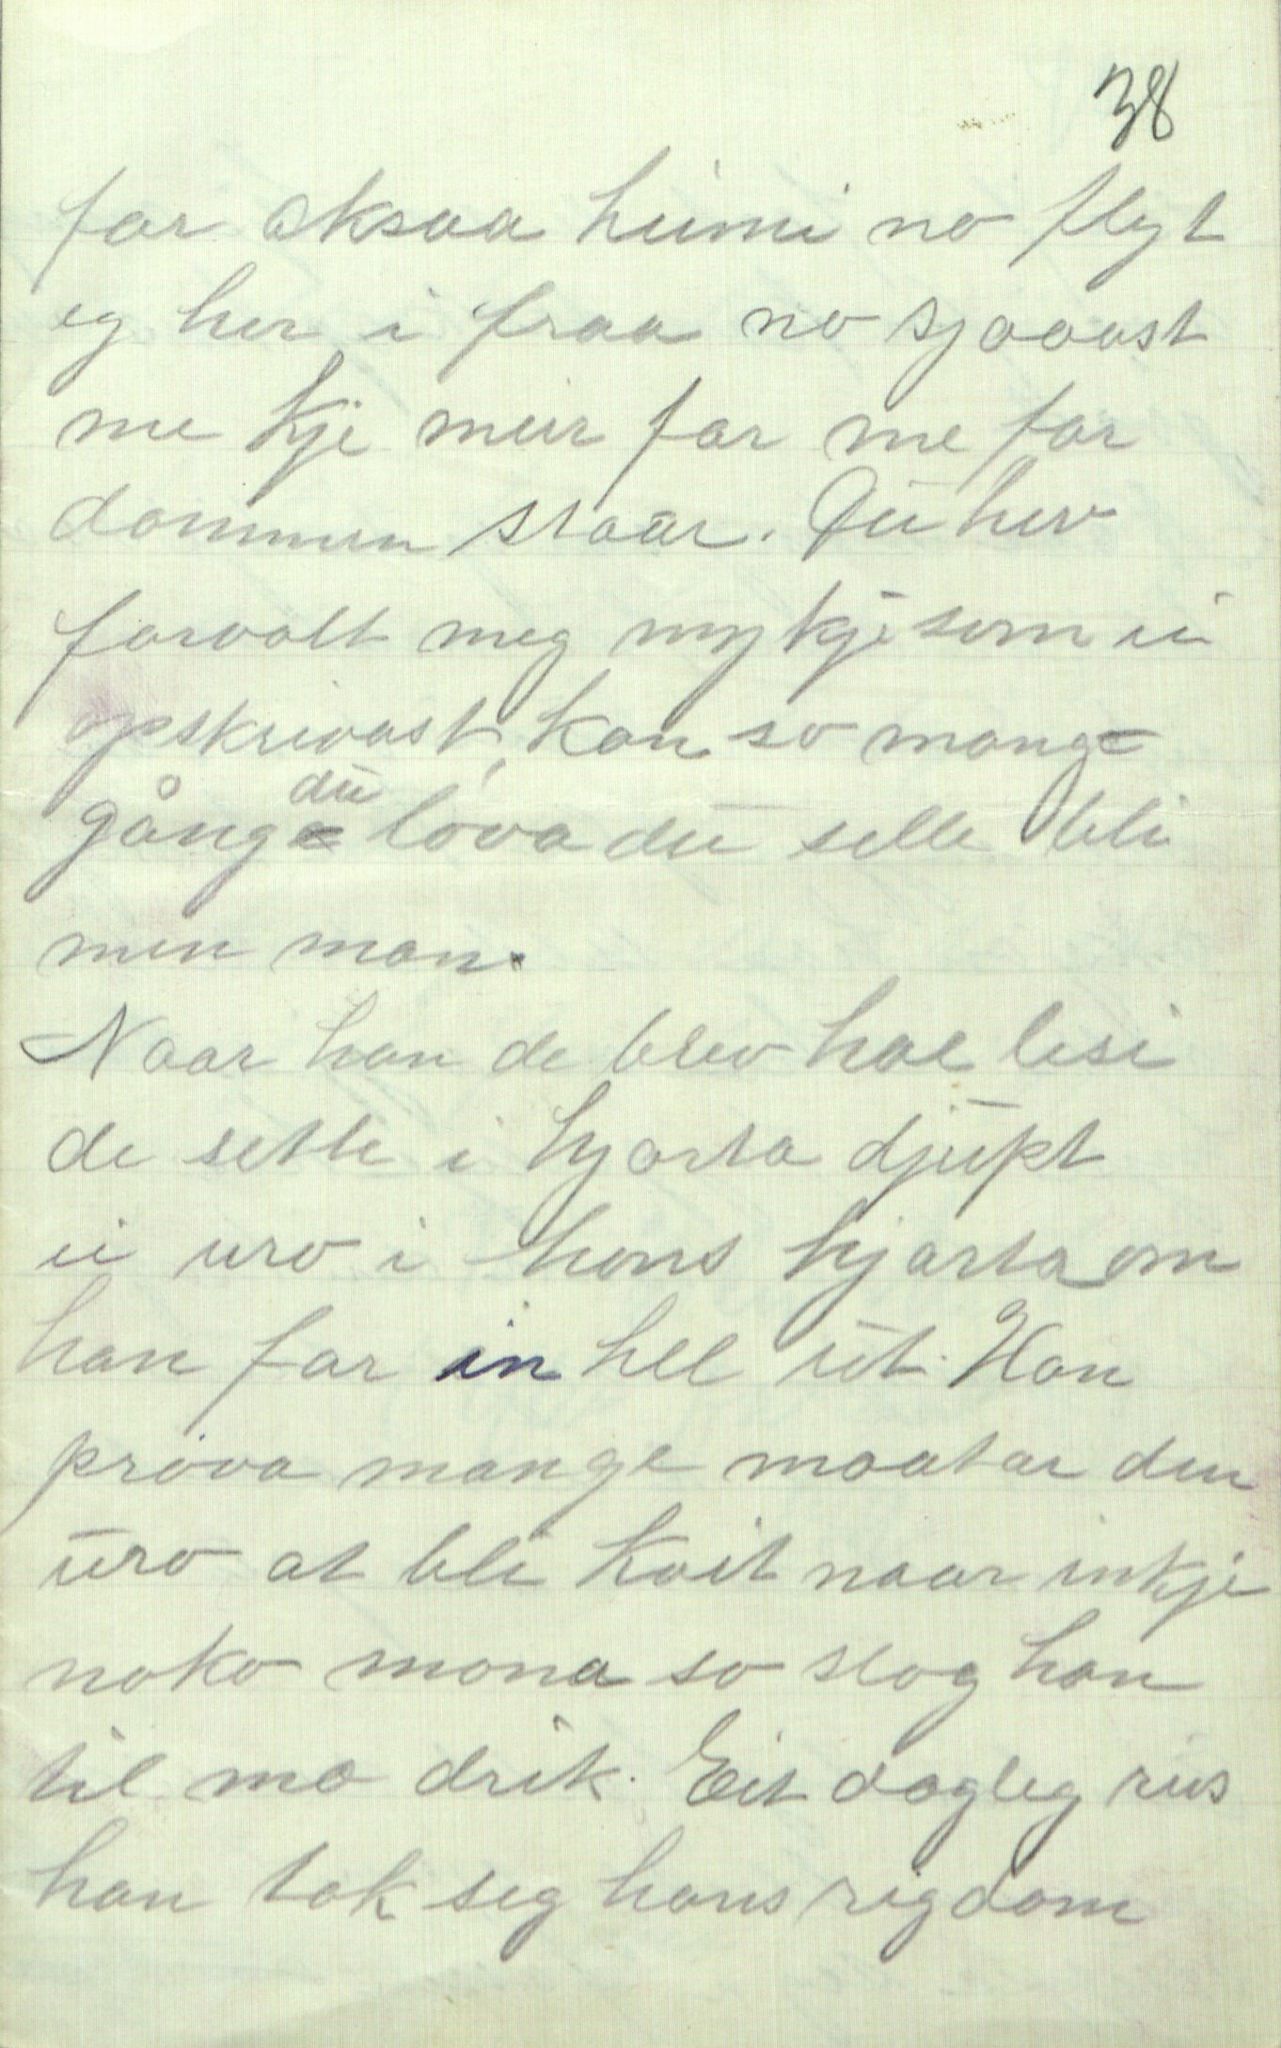 38
far oksaa heimi no flyt
eg her i fraa no sjaaast
me kje meir far me far
dommen staar. Du hev
forvolt meg mykje som ei
opskrivast kan so mange
gånge du lova du selle bli
min man.
Naar han de brev hae lesi
de sette i hjarta djupt
ei uro i hans hjarta om
han far in hel ut. Han
prøva mange maatar den
uro at bli kvit naar inkje
noko mona so slog han
til mæ drik. Eit dagleg rus
han tok seg hans rigdom